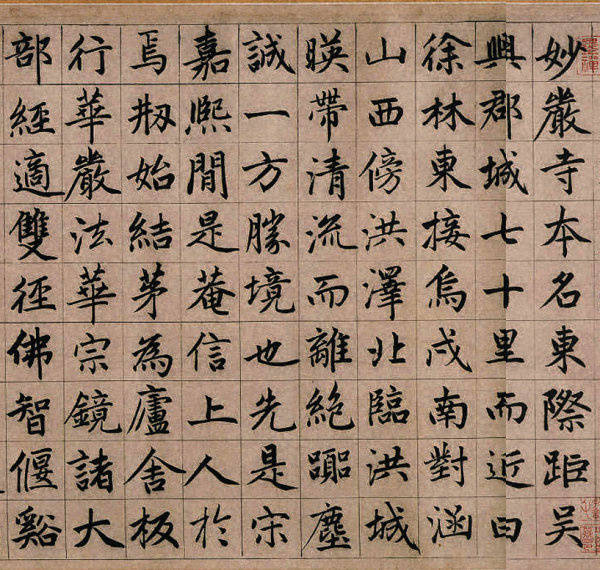 妙嚴寺本名東際距吳
興郡城七十里而近曰
徐林東接烏戍南對涵
山西傍洪澤北臨洪城
暎帶清流而離絕囂塵
誠一方勝境也先是宋
嘉熈閒是菴信上人於
焉剏始結茅為廬舍板
行華嚴法華宗鏡諸大
部經適雙徑佛智偃谿